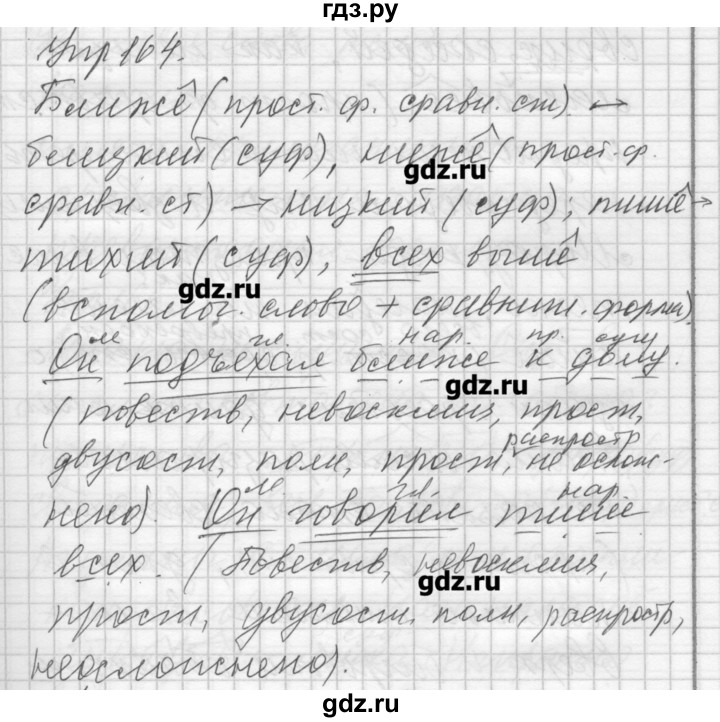 гдз.ру
Упр 164.
Ближе (прост. ф. сравн. ст) →
близкий (суф), ниже (прост. ф.
gdz.ru
сравн. ст) → низкий (суф); тише →
тихий (суф), всех выше
gdz.ru
(вспомог. слово + сравнит. форма)
м. гл. нар. пр. сущ
Он подъехал ближе к дому.
gdz.ru
(повеств, невосклиц, прост,
распростр
двусост, полн, прост, не ослож-
нено). Он говорил тише
м. гл. нар.
всех. (Повеств, невосклиц,
gdz.ru
прост, двусост. полн, распростр,
неосложнено).
gdz.ru